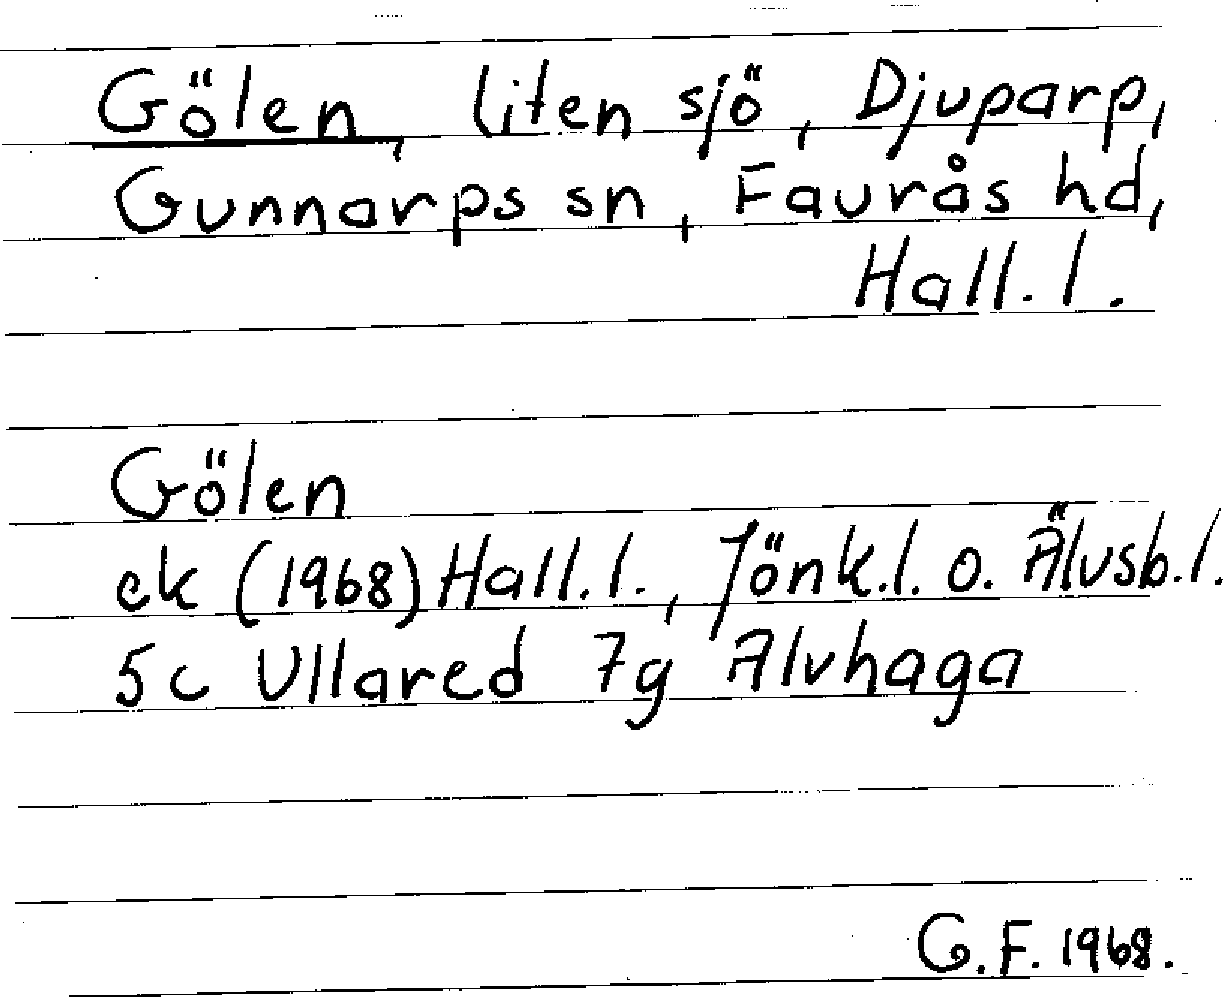 Gölen, liten sjö, Djuparp,
Gunnarps sn, Faurås hd,
Hall. l.
Gölen
ek (1968) Hall. l., Jönk.l. o. Älvsb.l.
5c Ullared 7g Älvhaga
G.F. 1968.